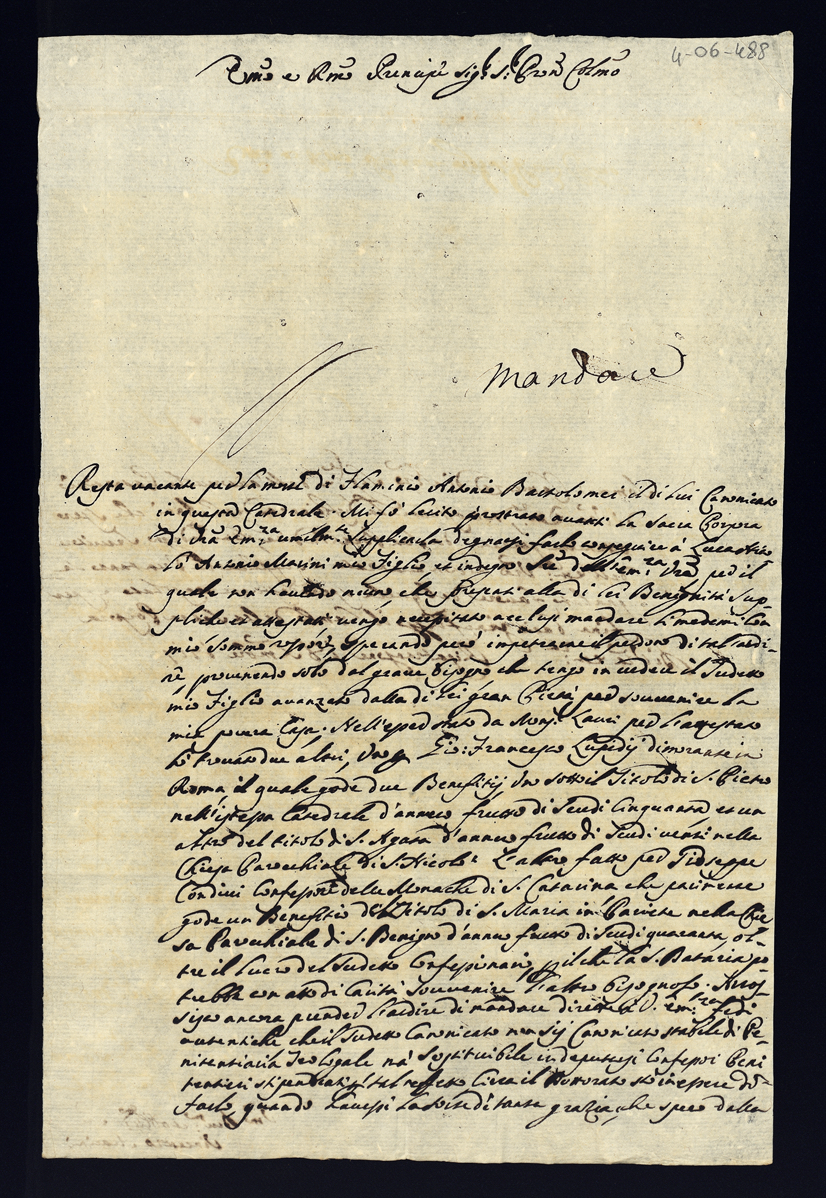 4-06-488
Emo e Rmo Prencipe Sigr Sr Pron Colmo
Mandare
Resta vacante per la morte di Flaminio Antonio Bartolomei il di lui Canonicato
in questa Catedrale. Mi fò lecito prostrato avanti la Sacra Porpora
di Vra Emza umilmte supplicarla degnarsi farlo conseguire à Luca
Antonio Marini mio Figlio et indegno dell'Emza Vra per il
quale non havendo niuno che presenti alla di lei Benignità sup-
pliche et attestati vengo necessitato a mandare li medemi con
mio sommo sperando però impetrarne il perdono di tal ardi-
re, provenendo solo dal grave bisogno che tengo in vedere il sudetto
mio Figlio avanzato dalla di lei gran Pietà, per souvenire la
mia povera Casa. Nell' da Monsr Lauri per l'attestato
hò trovato due altri, Uno Gio: Francesco Lupidij dimorante in
Roma il quale gode due Benefitij Uno sotto il Titolo di S. Pietro
nell'istessa Catedrale d'annuo frutto di Scudi Cinquanta et un
altro del titolo di S. Agata d'annuo frutto di Scudi venti nella
Chiesa Parochiale di S. Nicolò. L'altro fatto per Giuseppe
Condivi Confessore delle Monache di S. Catarina che
gode un Benefitio del Titolo di S. Maria in Pariete nella Chie
sa Parochiale di S. Benigno d'annuo frutto di Scudi quaranta, ol-
tre il lucro del sudetto Confessionario, il che la S. Dataria po
trebbe con atto di Carità souvenire l'altro bisognoso.
ancora prender l'ardire di mandare a V. Emza fedi
autentiche che il sudetto Canonicato non sij Canonicato stabile di Pe
nitentiaria Teologale ma sostituibile in deputarsi Confessori Peni
tentieri stipendiati, circa il sto in essere di
farlo, quando havessi la sorte di tanta grazia, che spero dalla